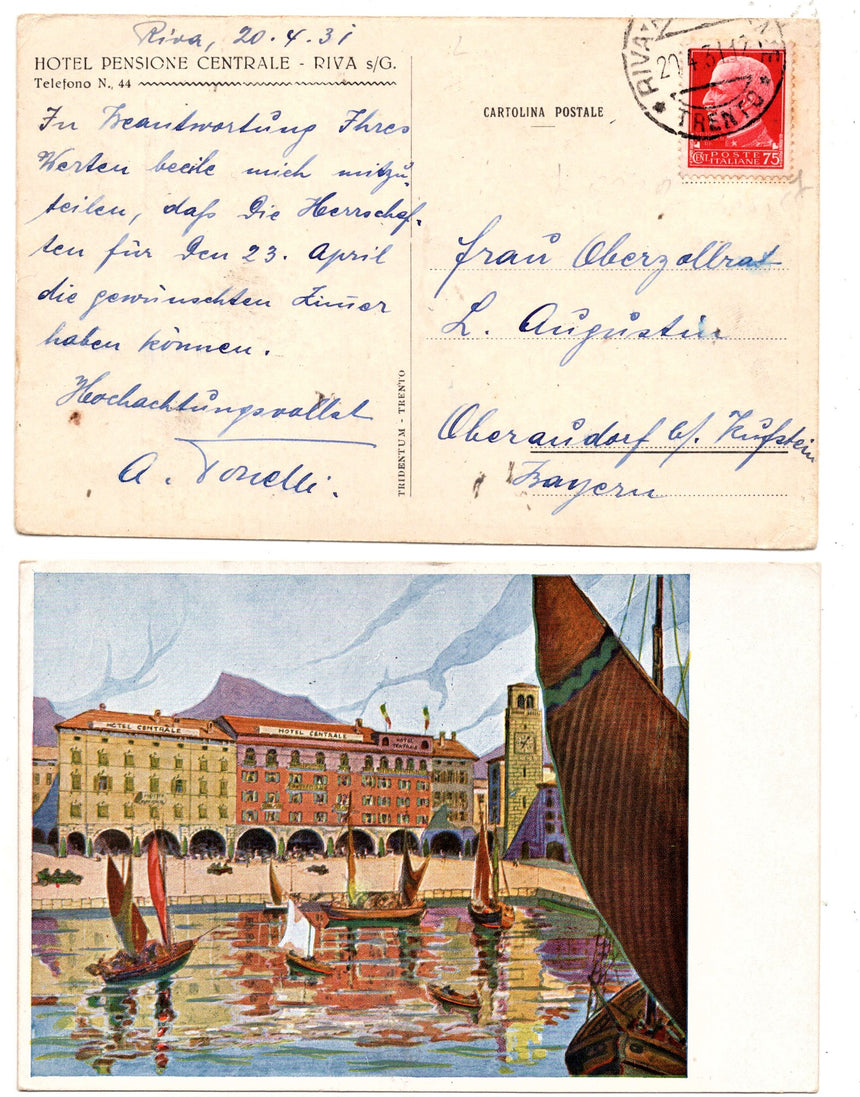 Riva, 20.4.31
HOTEL PENSIONE CENTRALE - RIVA s/G.
Telefono N. 44
In Beantwortung Ihres
Werten beeile mich mitzu-
teilen, daß Die Herrschaf-
ten für Den 23. April
die gewünschten Zimer
haben können.
Hochachtungsvollst
A. Tonelli.
TRIDENTUM - TRENTO
CARTOLINA POSTALE
RIVA
20.4.31.17
* TRENTO *
POSTE
CENT ITALIANE 75
Frau Oberzollrat
L. Augustin
Oberaudorf b/ Kufstein
Bayern
HOTEL CENTRALE
HOTEL CENTRALE
HOTEL
CENTRALE